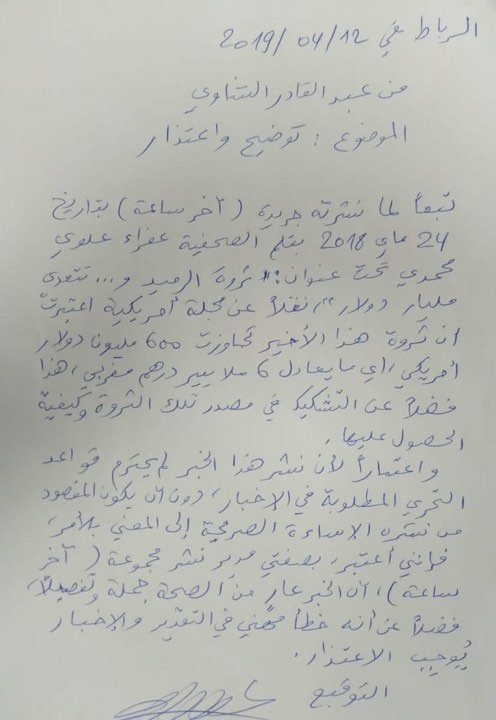 الرباط في 2019/04/12
من عبد القادر الشاوي
الموضوع : توضيح واعتذار
تبعاً لما نشرته جريدة (آخر ساعة) بتاريخ
24 ماي 2018 بقلم الصحفية عفراء علوي
محمدي تحت عنوان: "ثروة الرميد و... تتعدى
مليار دولار"، نقلاً عن مجلة أمريكية اعتبرت
أن ثروة هذا الأخير تجاوزت 600 مليون دولار
أمريكي، أي ما يعادل 6 ملايير درهم مغربي، هذا
فضلاً عن التشكيك في مصدر تلك الثروة وكيفية
الحصول عليها.
واعتباراً لأن نشر هذا الخبر لم يحترم قواعد
التحري المطلوبة في الإخبار، دون أن يكون المقصود
من نشره الإساءة الصريحة إلى المعني بالأمر،
فإنني أعتبر، بصفتي مدير نشر مجموعة (آخر
ساعة)، أن الخبر عار من الصحة جملة وتفصيلاً،
فضلاً عن أنه خطأ مهني في التقدير والإخبار
يُوجب الاعتذار.
التوقيع